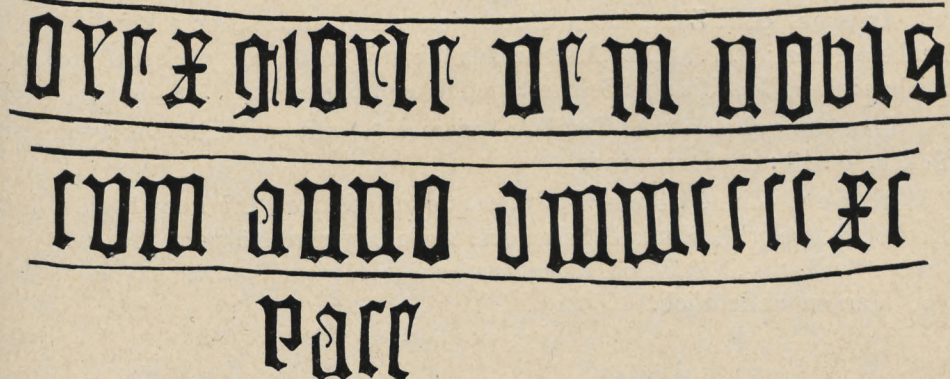 orex glorie vem nobis
cvm anno dmmccccxc
pace